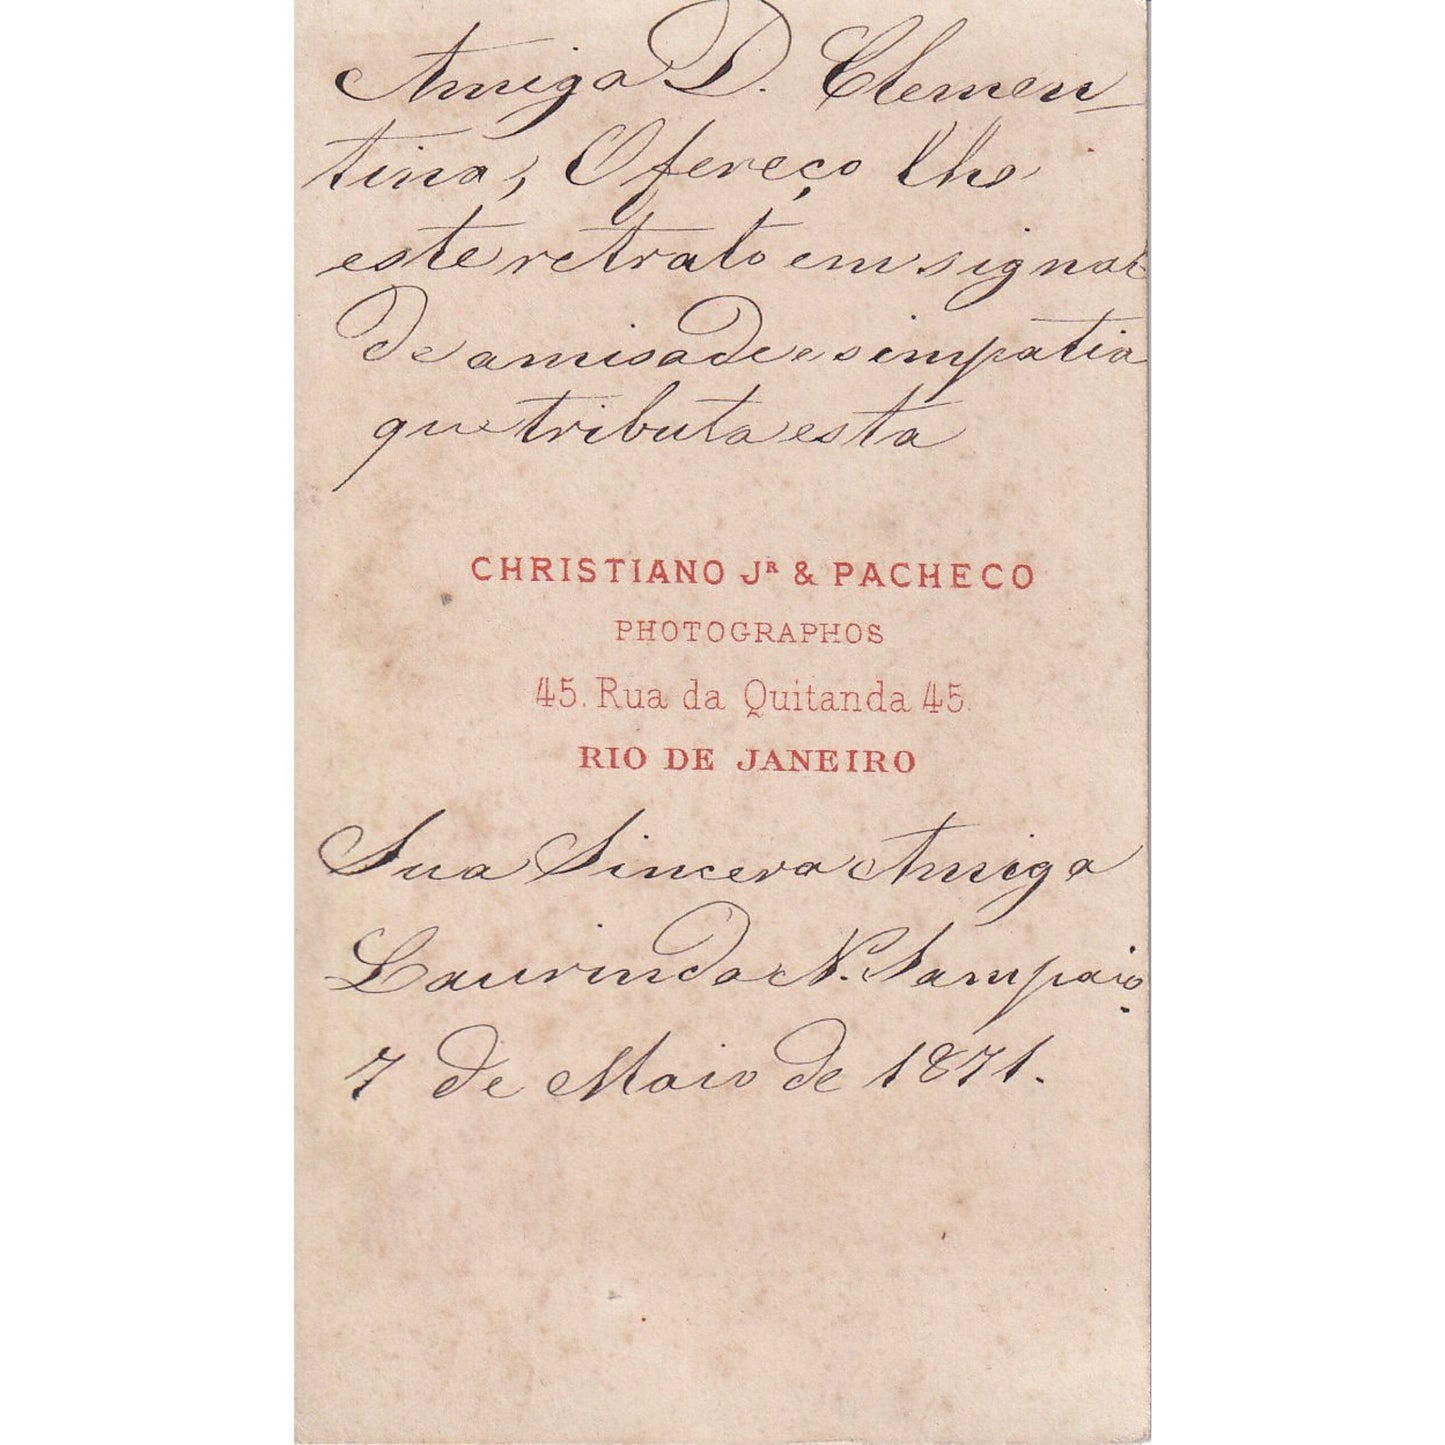 Amiga D. Clemen-
tina, Ofereço lhe
este retrato em signal
de amisade e simpatia
que tributa esta
CHRISTIANO JR & PACHECO
PHOTOGRAPHOS
45. Rua da Quitanda 45.
RIO DE JANEIRO
Sua Sincera Amiga
Laurinda N. Sampaio.
7 de Maio de 1871.